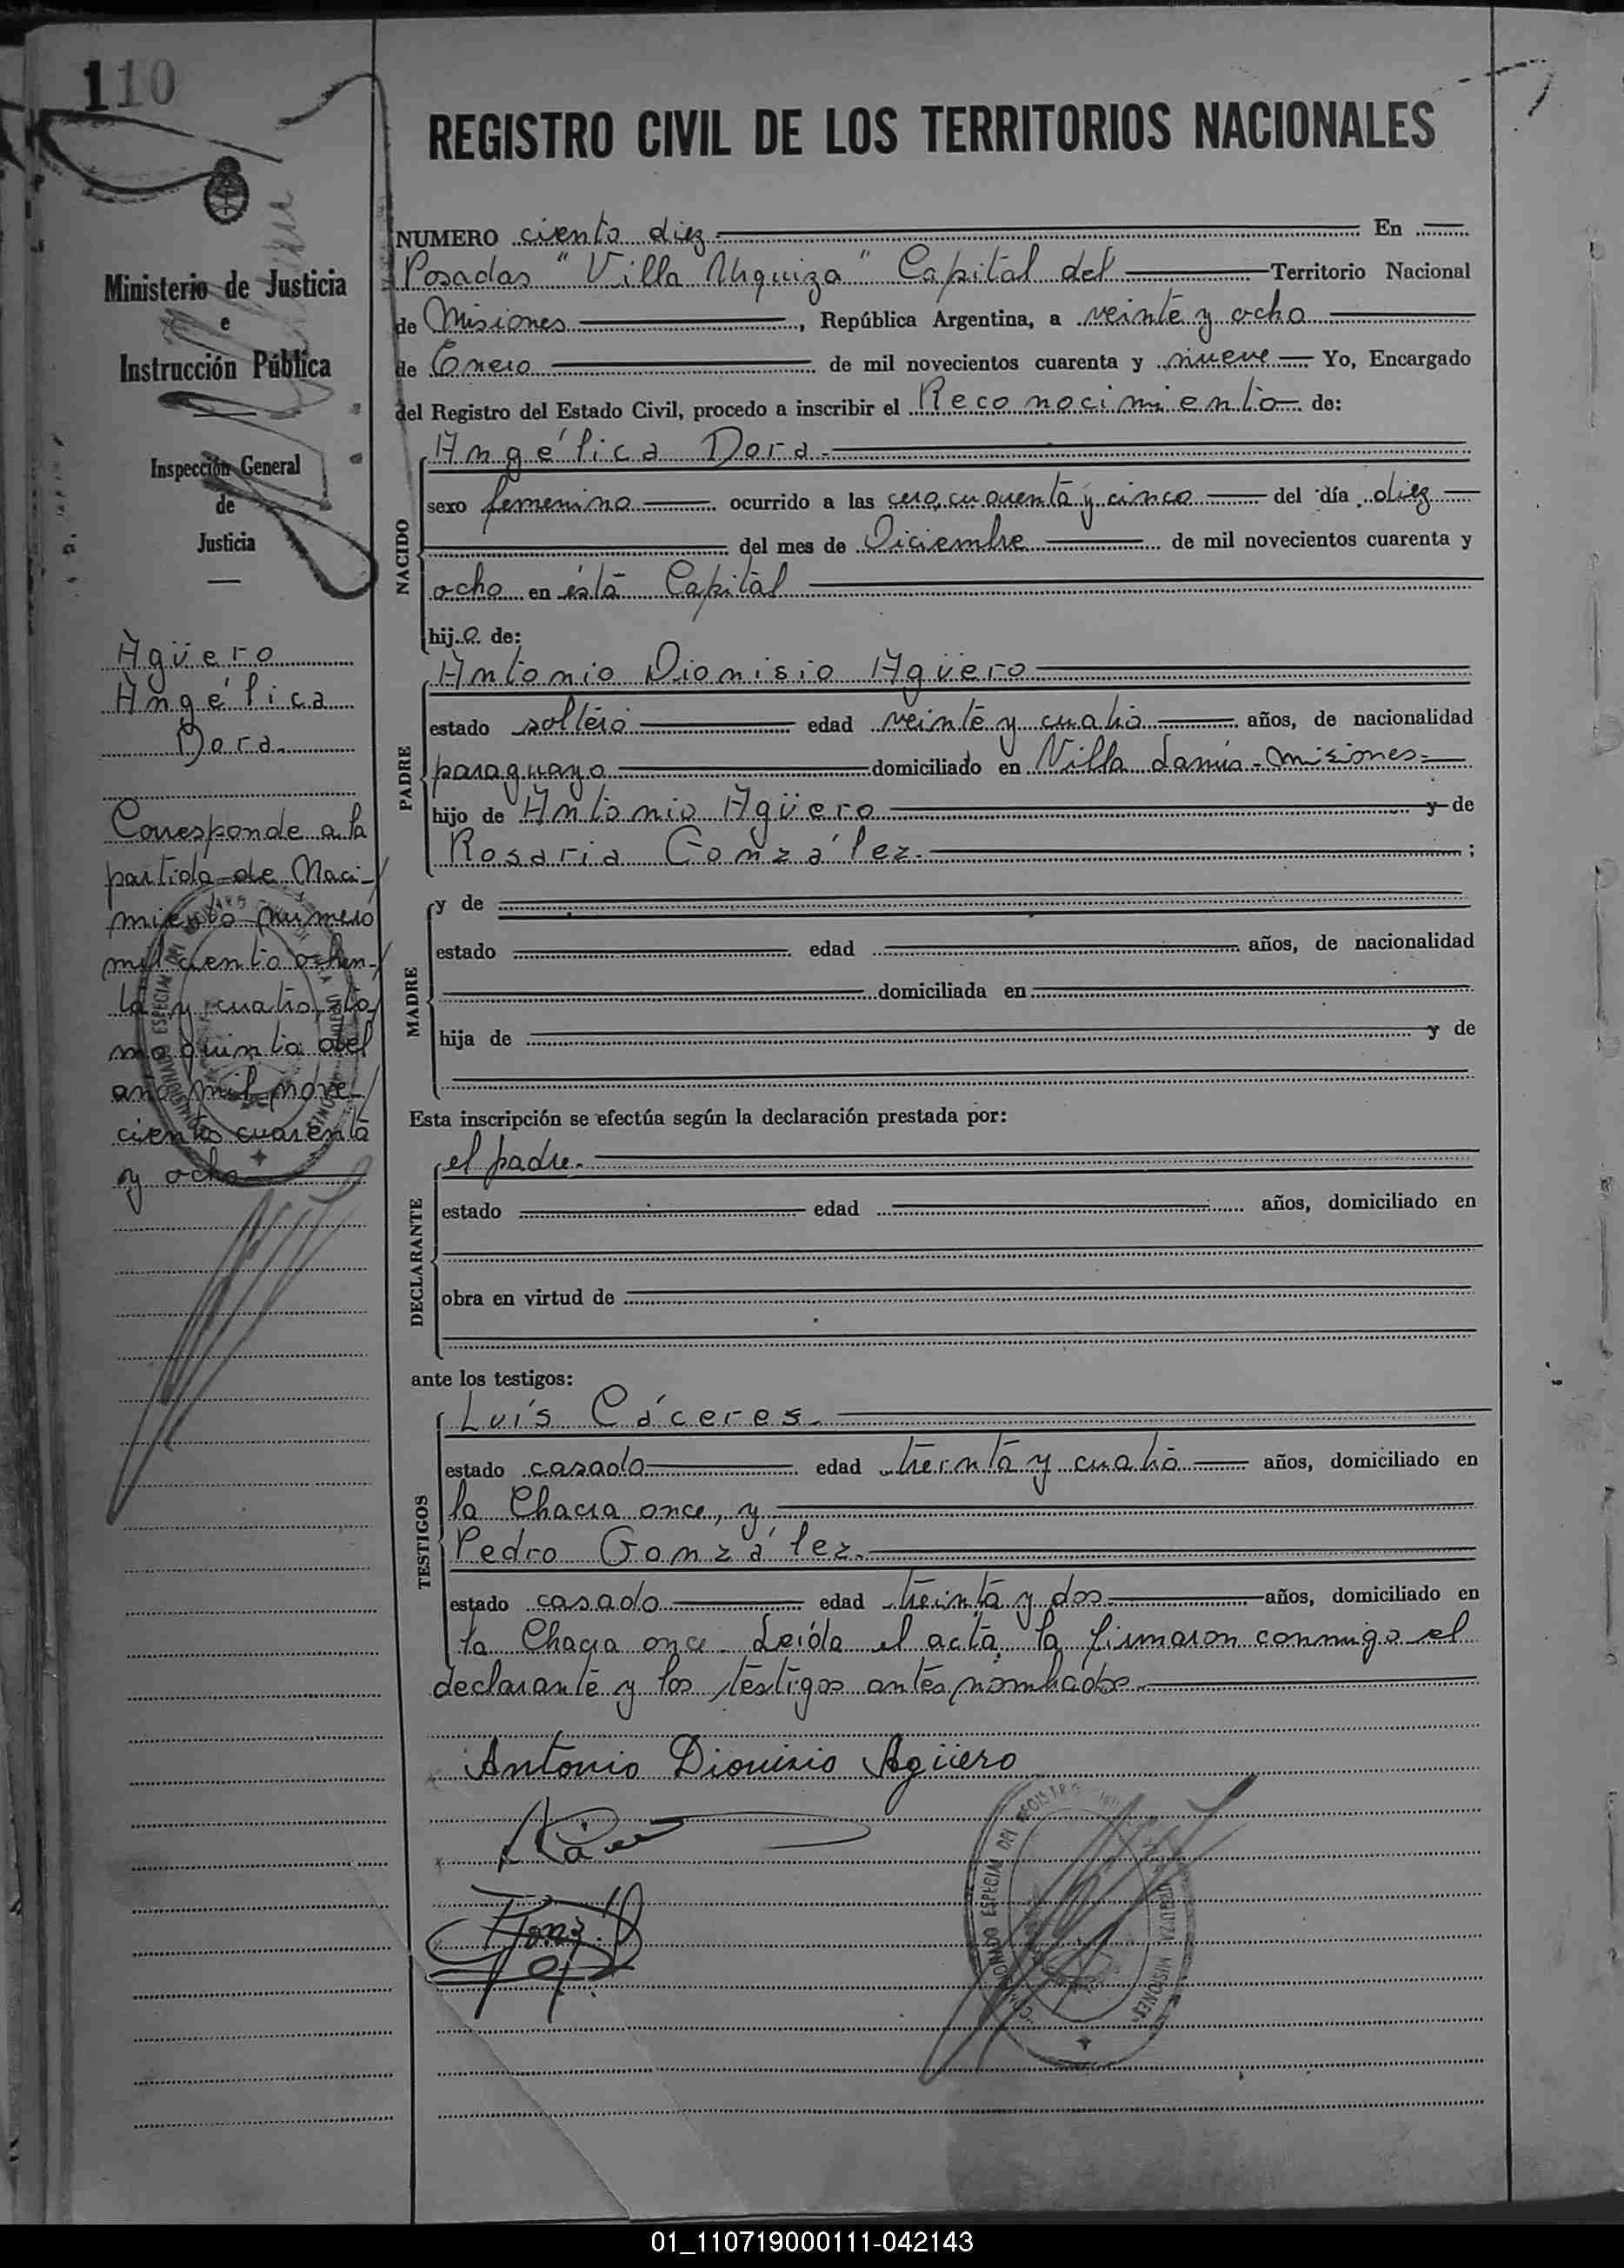 110
REGISTRO CIVIL DE LOS TERRITORIOS NACIONALES
Ministerio de Justicia
e
Instrucción Pública
Inspección General
de
Justicia
Agüero
Angélica
Dora
Corresponde a la
partida de Naci-
miento número
mil ciento ochen-
ta y cuatro to
mo quinto del
año mil nove-
cientos cuarenta
y ocho
NUMERO ciento diez En
Posadas "Villa Urquiza" Capital del Territorio Nacional
de Misiones, República Argentina, a veinte y ocho
de Enero de mil novecientos cuarenta y nueve Yo, Encargado
del Registro del Estado Civil, procedo a inscribir el Reconocimiento de:
NACIDO
Angélica Dora.
sexo femenino ocurrido a las cero, cuarenta y cinco del día diez
del mes de Diciembre de mil novecientos cuarenta y
ocho en ésta Capital
hij.a de:
PADRE
Antonio Dionisio Agüero
estado soltero edad veinte y cuatro años, de nacionalidad
paraguayo domiciliado en Villa Lanús - Misiones
hijo de Antonio Agüero y de
Rosaria González. ;
MADRE
y de
estado edad años, de nacionalidad
domiciliada en
hija de y de
Esta inscripción se efectúa según la declaración prestada por:
DECLARANTE
el padre.
estado edad años, domiciliado en
obra en virtud de
ante los testigos:
TESTIGOS
Luís Cáceres.
estado casado edad treinta y cuatro años, domiciliado en
la Chacra once, y
Pedro González.
estado casado edad treinta y dos años, domiciliado en
la Chacra once. Leída el acta, la firmaron conmigo el
declarante y los testigos antes nombrados.
Antonio Dionisio Agüero
ESPECIAL DEL REGISTRO
URQUIZA MISIONES
01_110719000111-042143